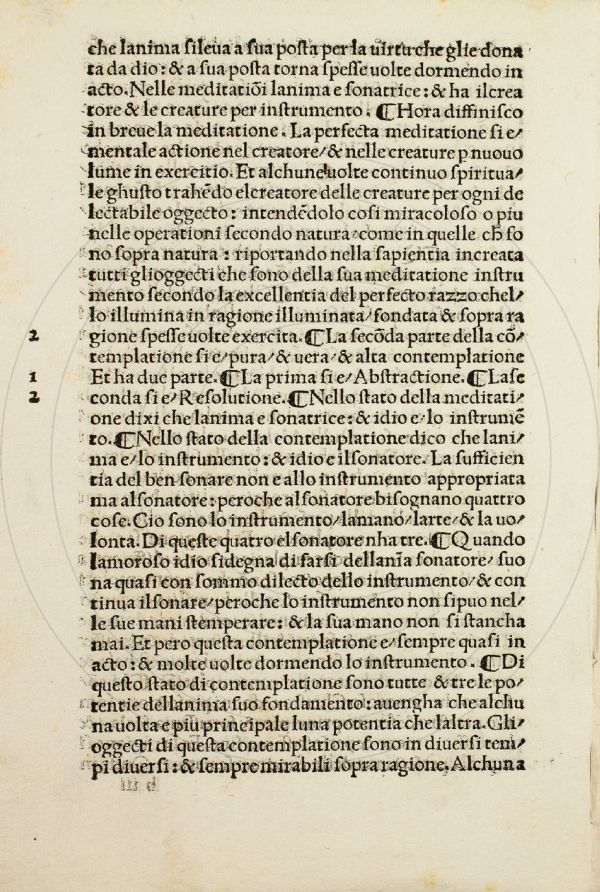 che lanima silieua a sua posta per la uirtu che glie dona
ta da dio: & a sua posta torna spesse uolte dormendo in
acto. Nelle meditatiõi lanima e sonatrice: & ha ilcrea
tore & le creature per instrumento. ¶ Hora diffinisco
in breue la meditatione. La perfecta meditatione si e/
mentale actione nel creatore/& nelle creature p nuouo
lume in exercitio. Et alchune uolte continuo spiritua/
le ghusto trahẽdo elcreatore delle creature per ogni de
lectabile oggecto: intendẽdolo cosi miracoloso o piu
nelle operationi secondo natura/come in quelle ch̃ so
no sopra natura: riportando nella sapientia increata
tutti glioggecti che sono della sua meditatione instru
mento secondo la excellentia del perfecto razzo chel/
lo illumina in ragione illuminata/fondata & sopra ra
2 gione spesse uolte exercita. ¶ La secõda parte della cõ/
templatione si e/pura/& uera/& alta contemplatione
1 Et ha due parte. ¶ La prima si e/Abstractione. ¶ Lase
2 conda si e/Resolutione. ¶ Nello stato della meditati/
one dixi che lanima e sonatrice: & idio e/lo instrumẽ
to. ¶ Nello stato della contemplatione dico che lani/
ma e/lo instrumento: & idio e ilsonatore. La sufficien
tia del ben sonare non e allo instrumento appropriata
ma alsonatore: peroche al sonatore bisognano quattro
cose. Cio sono lo instrumento/lamano/larte/& la uo/
lonta. Di queste quatro elsonatore nha tre. ¶ Quando
lamoroso idio sidegna di farsi dellanĩa sonatore/suo
na quasi con sommo dilecto dello instrumento/& con
tinua ilsonare/peroche lo instrumento non sipuo nel/
le sue mani stemperare: & la sua mano non si stancha
mai. Et pero questa contemplatione e/sempre quasi in
acto: & molte uolte dormendo lo instrumento. ¶ Di
questo stato di contemplatione sono tutte & tre le po/
tentie dellanima suo fondamento: auengha che alchu
na uolta e piu principale luna potentia che laltra. Gli/
oggecti di questa contemplatione sono in diuersi tem/
pi diuersi: & sempre mirabili sopra ragione. Alchuna